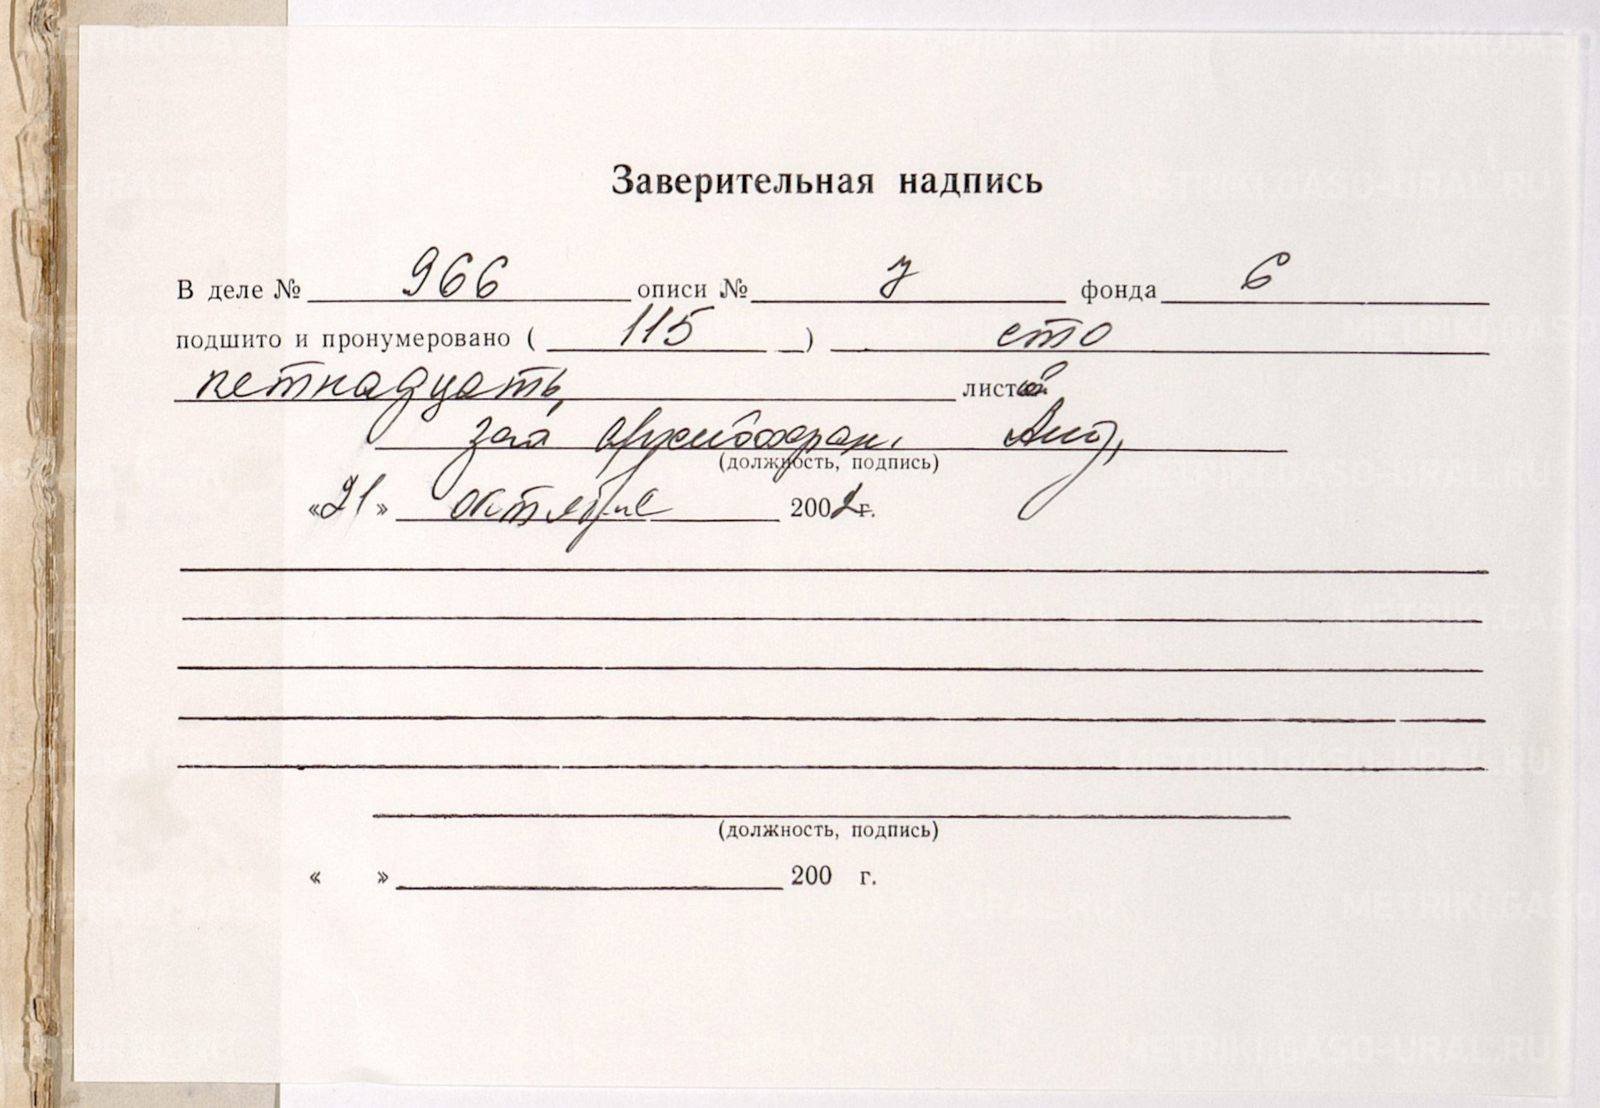 Заверительная надпись
В деле № 966 описи № 7 фонда 6
подшито и пронумеровано ( 115 ) сто
петнадцать листов
зав архивохран.
(должность, подпись)
«21» октября 2002 г.
(должность, подпись)
« » 200 г.
METRIKI.GASO-URAL.RU